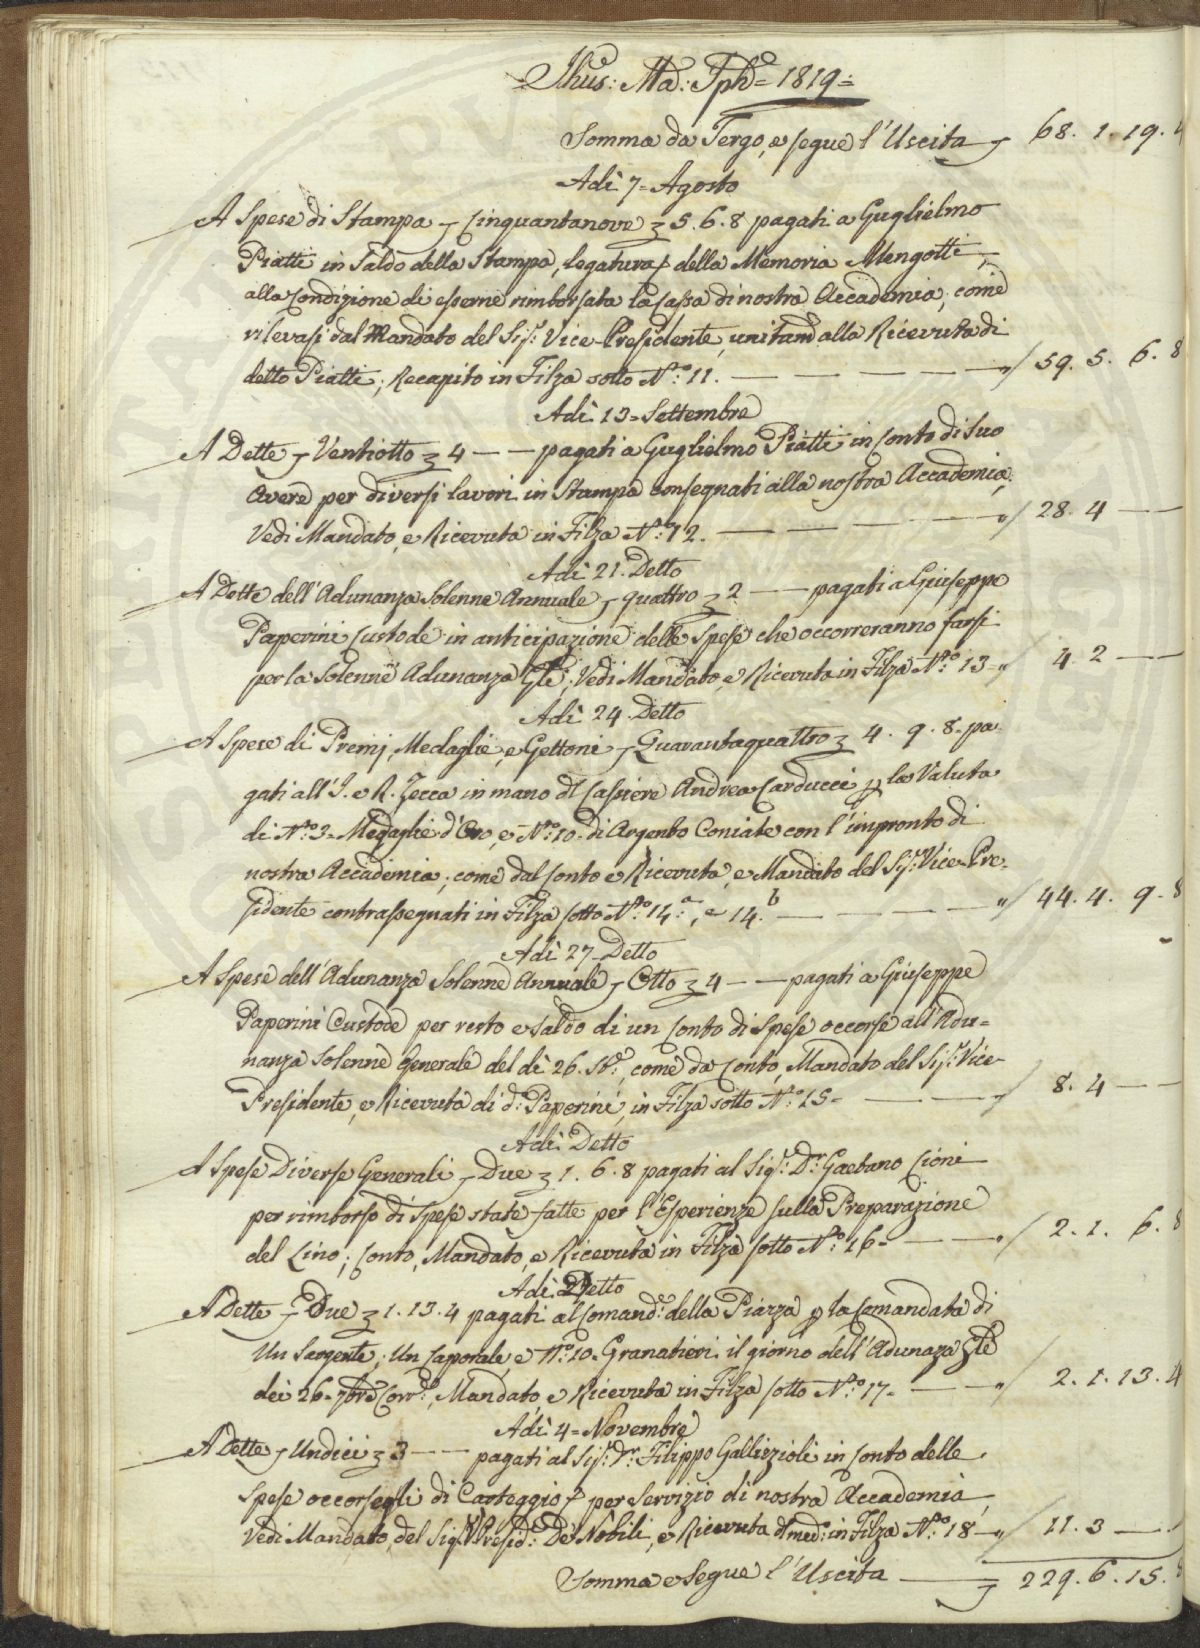 Jhus: Ma: Jph = 1819 =
Somma da Tergo, e segue l'Uscita 68. 1. 19. 4
Adì 7 = Agosto
A Spese di Stampa Cinquantanove 5. 6. 8 pagati a Guglielmo
Piatti in Saldo della Stampa, legatura della Memoria Mengotti,
alla Condizione di esserne rimborsata la Cassa di nostra Accademia; come
rilevasi dal Mandato del Sig.r Vice-Presidente, unitam.e alla Ricevuta di
detto Piatti; Recapito in Filza sotto N.o 11. — 59. 5. 6. 8
Adì 13 = Settembre
A Dette Ventiotto 4 — — pagati a Guglielmo Piatti in Conto di Suo
Avere per diversi lavori in Stampa consegnati alla nostra Accademia,
Vedi Mandato, e Ricevuta in Filza N.o 12. — 28. 4 —
Adì 21. Detto
A Dette dell'Adunanza Solenne Annuale quattro 2 — pagati a Giuseppe
Paperini Custode in anticipazione delle Spese che occorreranno farsi
per la Solenne Adunanza Gle; Vedi Mandato, e Ricevuta in Filza N.o 13 — 4. 2 —
Adì 24. Detto
A Spese di Premj, Medaglie, e Gettoni Quarantaquattro 4. 9. 8. pa-
gati all'I. e R. Zecca in mano del Cassiere Andrea Carducci p la Valuta
di N.o 3 = Medaglie d'Oro, e N.o 10 = di Argento Coniate con l'impronto di
nostra Accademia; come dal Conto e Ricevuta, e Mandato del Sig.r Vice-Pre-
sidente contrassegnati in Filza sotto N.o 14.a, e 14.b — 44. 4. 9. 8
Adì 27 Detto
A Spese dell'Adunanza Solenne Annuale Otto 4 — — pagati a Giuseppe
Paperini Custode per resto e saldo di un Conto di Spese occorse all'Adu=
nanza Solenne Generale del dì 26. St.e, come da Conto, Mandato del Sig.r Vice-
Presidente, e Ricevuta di d.o Paperini, in Filza sotto N.o 15 = — 8. 4 —
Adì Detto
A Spese Diverse Generali Due 1. 6. 8 pagati al Sig.r D.r Gaetano Cioni
per rimborso di Spese state fatte per l'Esperienze sulla Preparazione
del Lino; Conto, Mandato, e Ricevuta in Filza sotto N.o 16 = — 2. 1. 6. 8
Adì Detto
A Dette Due 1. 13. 4 pagati al Comand.e della Piazza p la Comandata di
Un Sargente, Un Caporale, e N.o 10 = Granatieri il giorno dell'Adunaza Gle
dei 26 = 7bre Corr.e, Mandato, e Ricevuta in Filza sotto N.o 17 = — 2. 1. 13. 4
Adì 4 = Novembre
A Dette Undici 3 — pagati al Sig.r D.r Filippo Gallizioli in Conto delle
Spese occorsegli di Carteggio per Servizio di nostra Accademia,
Vedi Mandato del Sig.r V.Presid.e De Nobili, e Ricevuta del med.o in Filza N.o 18 — 11. 3 —
Somma e Segue l'Uscita — 229. 6. 15. 8